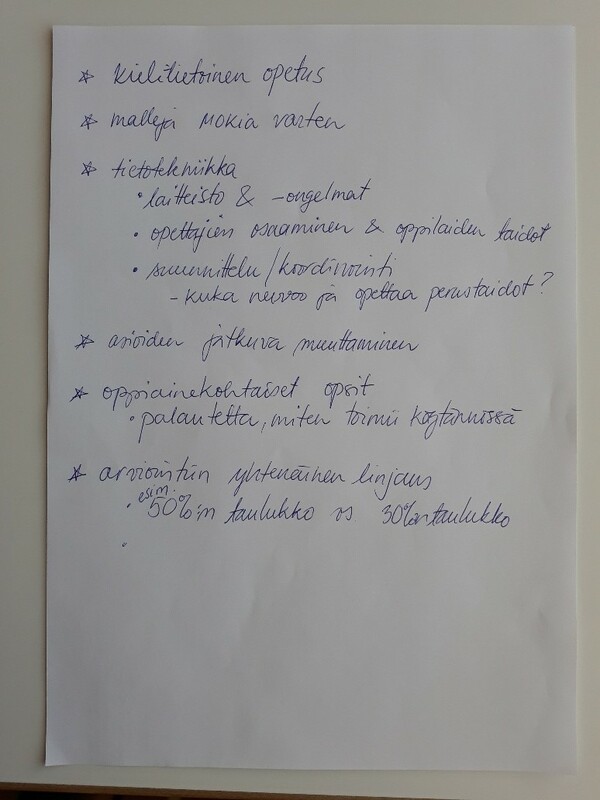 * kielitietoinen opetus
* malleja MOKia varten
* tietotekniikka
• laitteisto & -ongelmat
• opettajien osaaminen & oppilaiden taidot
• suunnittelu/koordinointi
- kuka neuvoo ja opettaa perustaidot?
* asioiden jatkuva muuttaminen
* oppiainekohtaiset opsit
• palautetta, miten toimii käytännössä
* arviointiin yhtenäinen linjaus
• esim. 50%:n taulukko vs 30%:n taulukko
•